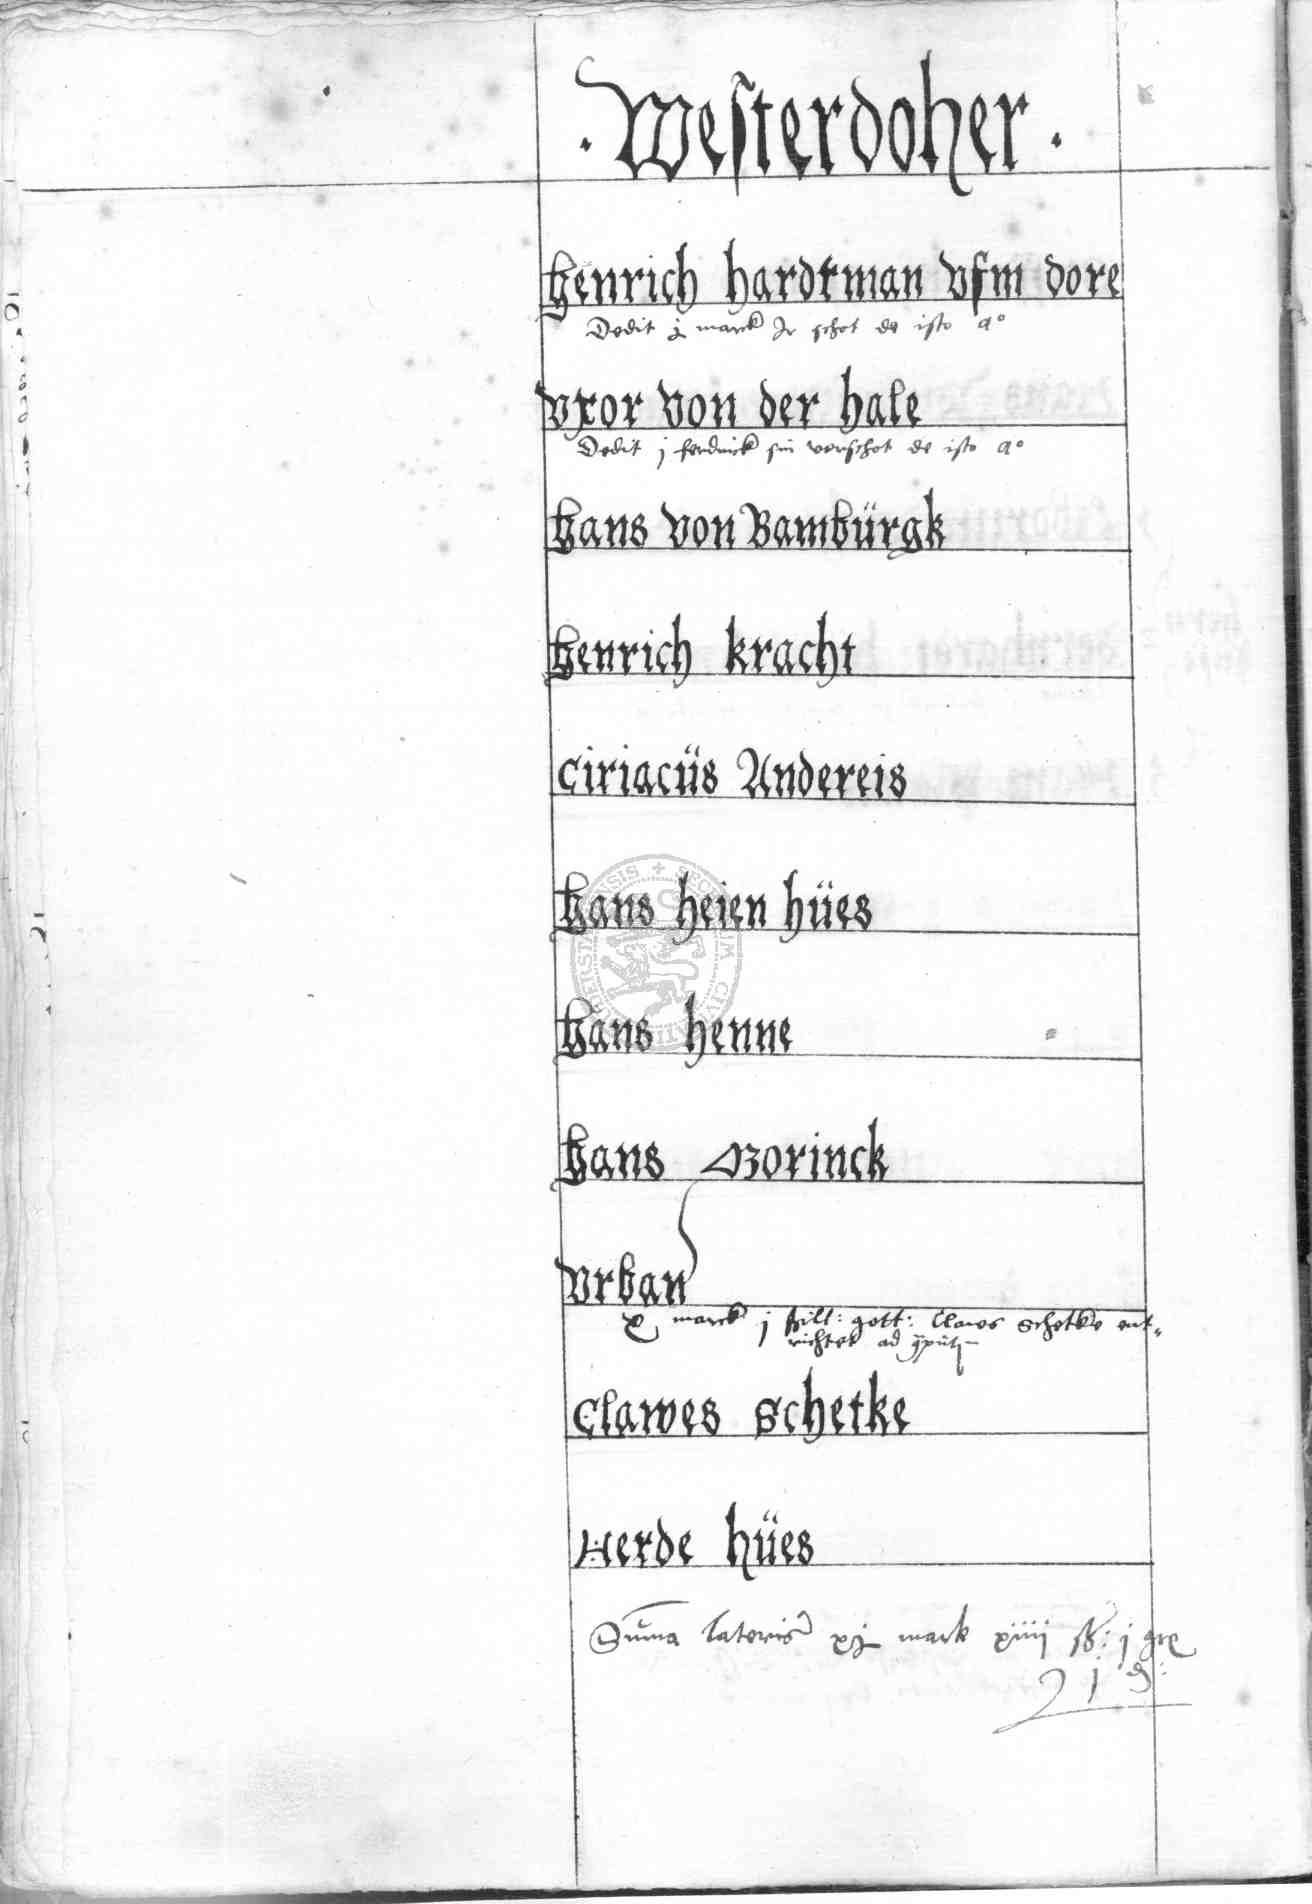 . Westerdoher .
Henrich hardtman vfm dore
Dedit j marck Ir schot de isto a°
vxor von der hale
Dedit j ferdinck sin vorschot de isto a°
Hans von Bambürgk
Henrich kracht
Ciriacüs Andereis
Hans heien hües
Hans henne
Hans Borinck
Vrban
x marck j gott: Clawes Schetke ent-
richtet ad
Clawes Schetke
Herde hües
Suma lateris xj mark xiiij ß: j gre